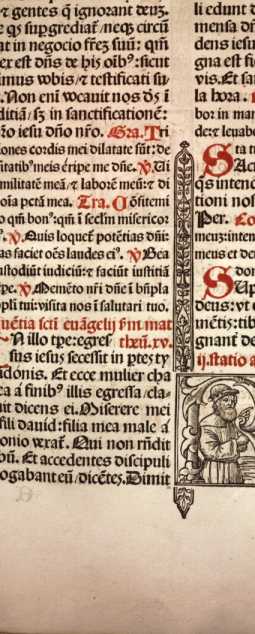 & gentes q̄ ignorant deuʒ.
qs supgrediat᷑ /neqʒ circū
at in negocio fr̄eʒ suū: qm̄
ex est dn̄s de his oībꝰ: sicut
imus vobis/& testificati su-
. Non enī vocauit nos dꝰs ī
ditiā/ sʒ in sanctificationē:
r̄o iesu dn̄o nr̄o. Gra. Tri
iones cordis mei dilatate sūt: de
itatibꝰ meis eripe me dn̄e. ℣. Ui
militatē meā/& laborē meū: & di
oīa petā mea. Tra. Cōfitemi
o qm̄ bonꝰ: qm̄ ī seclm̄ misericor
s. ℣. Quis loquet᷑ potētias dn̄i:
as faciet oēs laudes eiꝰ. ℣. Bea
ustodiūt iudiciū: & faciūt iustitiā
pe. ℣. Memēto nr̄i dn̄e ī bn̄pla
opli tui: visita nos ī salutari tuo.
quētia scti euāgelij ẜm mat
N illo tp̄e: egres theū. xv.
sus iesus secessit in ptes ty
idonis. Et ecce mulier cha
a a finibꝰ illis egressa /cla-
uit dicens ei. Miserere mei
fili dauid: filia mea male a
onio vexat᷑. Qui non rn̄dit
bū. Et accedentes discipuli
ogabant eū /dicētes. Dimit
li edunt d
mensa dn̄
dens iesu
gna est fi
vis. Et sa
la hora.
bor in man
de: & leuabo
Sta
Act
qs inten
tioni nos
Per. Co
meuʒ: inten
meus et de
S don
Up
deus: vt
mētis: tib
gnant de
ij. statio a